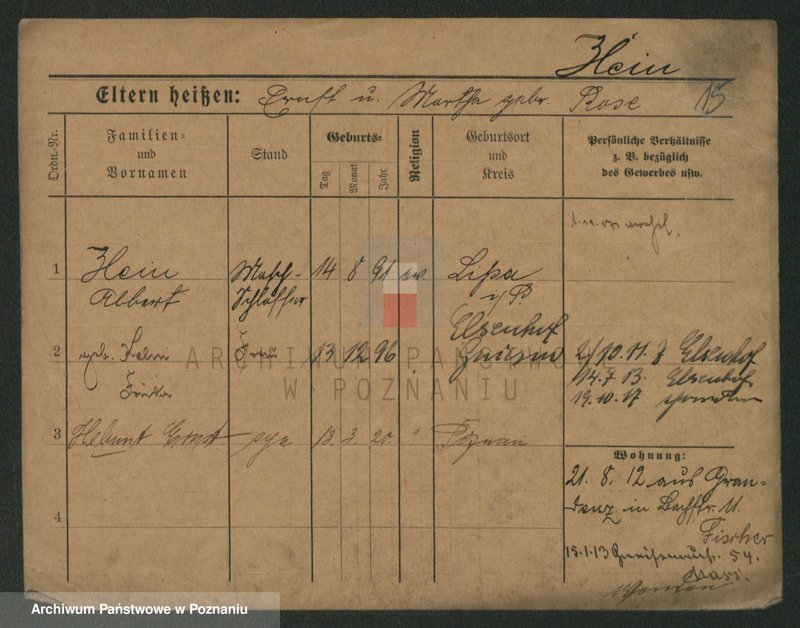 Hein
Eltern heißen: Ernst u. Martha gebr. Rose 15
Ordn.-Nr.
Familien-
und
Vornamen
Stand
Geburts-
Tag
Monat
Jahr
Religion
Geburtsort
und
Kreis
Persönliche Verhältnisse
z. B. bezüglich
des Gewerbes usw.
1 Hein Masch- 14 8 91 ev. Lipa
Albert Schlosser i/P
Elsenhof
2 geb. Frau 13 12 96 Gnesen 2/10.11. z Elsenhof
14.7 13. Elsenhof
19.10.17
3 Helmut Ernst syn 13. 3. 20. " Poznań
Wohnung:
21. 8. 12 aus Grau-
denz in Bachstr. 11.
4
Fischer
15.1.13 Gneisenaustr. 54.
ARCHIWUM PAŃSTWOWE
W POZNANIU
Archiwum Państwowe w Poznaniu